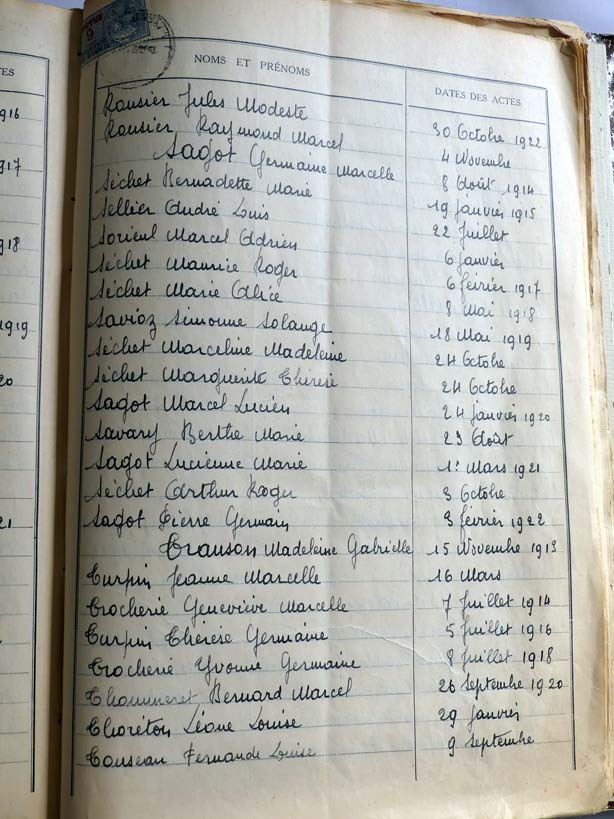 TES
916
917
918
1919
20
21
NOMS ET PRÉNOMS DATES DES ACTES
Rousier Jules Modeste 30 Octobre 1922
Rousier Raymond Marcel 4 Novembre
Sagot Germaine Marcelle 8 Août 1914
Séchet Bernadette Marie 19 janvier 1915
Sellier André Louis 22 juillet
Sorieul Marcel Adrien 6 janvier
Séchet Maurice Roger 6 février 1917
Séchet Marie Alice 8 Mai 1918
Savioz Simonne Solange 18 Mai 1919
Séchet Marceline Madeleine 24 Octobre
Séchet Marguerite Thérèse 24 Octobre
Sagot Marcel Lucien 24 janvier 1920
Savary Berthe Marie 23 Août
Sagot Lucienne Marie 1er Mars 1921
Séchet Arthur Roger 3 Octobre
Sagot Pierre Germain 3 février 1922
Transon Madeleine Gabrielle 15 Novembre 1913
Turpin Jeanne Marcelle 16 Mars
Trocherie Geneviève Marcelle 7 juillet 1914
Turpin Thérèse Germaine 5 juillet 1916
Trocherie Yvonne Germaine 8 juillet 1918
Thommeret Bernard Marcel 26 Septembre 1920
Thoréton Léone Louise 29 janvier
Touseau Fernande Louise 9 septembre